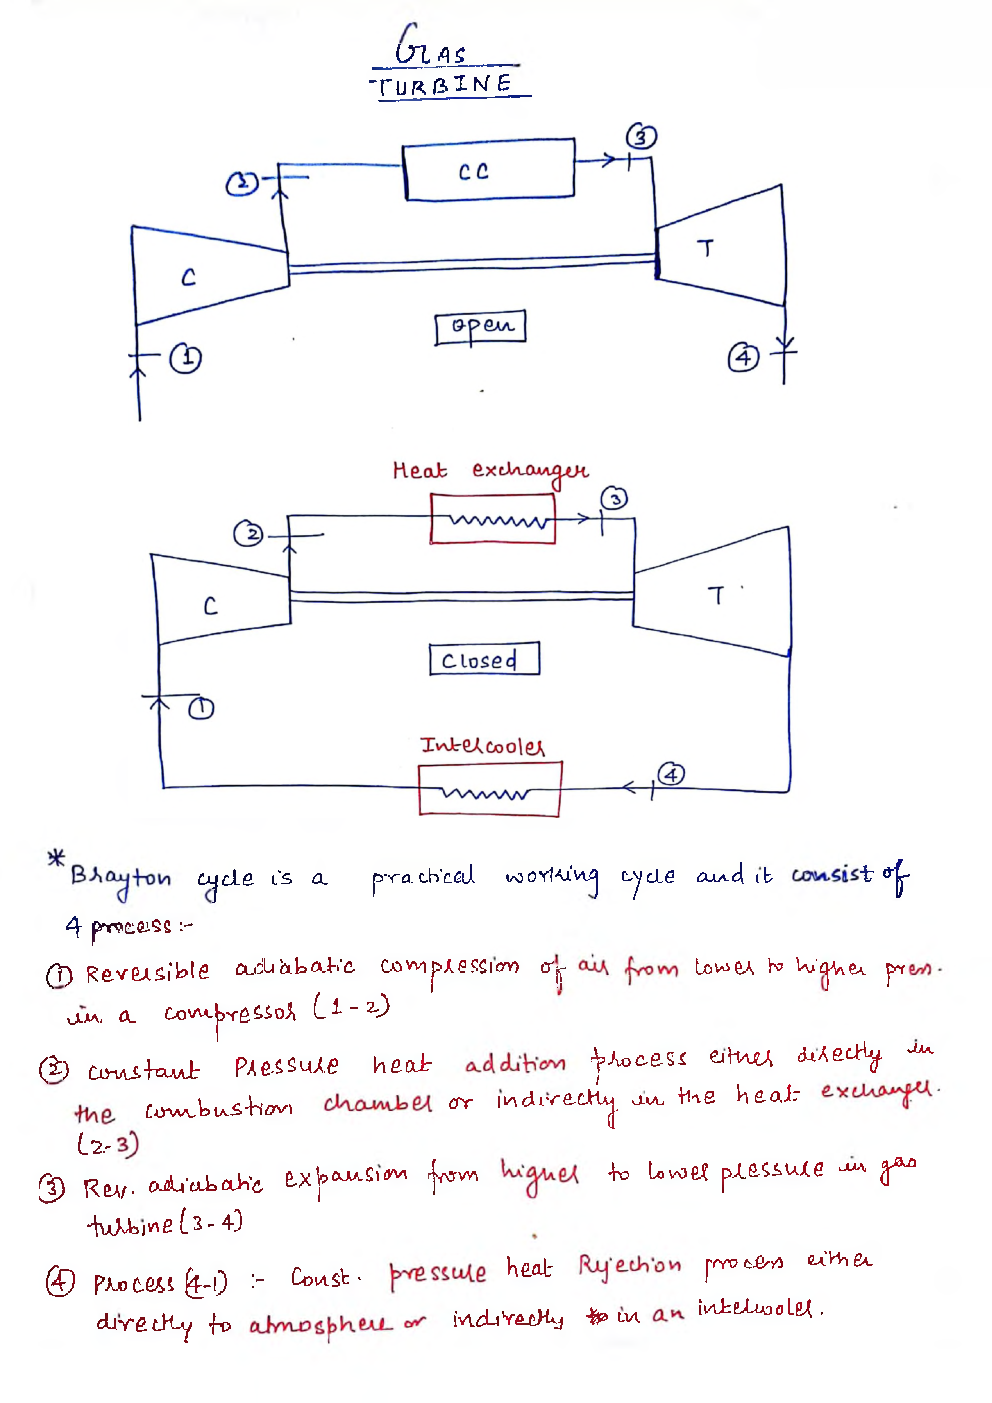 GAS
TURBINE
CC
③
②
C
T
open
①
④
Heat exchanger
③
②
C
T
closed
①
Intercooler
④
* Brayton cycle is a practical working cycle and it consist of
4 process :-
① Reversible adiabatic compression of air from lower to higher pren.
in a compressor (1-2)
② constant Pressure heat addition process either directly in
the combustion chamber or indirectly in the heat exchanger.
(2-3)
③ Rev. adiabatic expansion from higher to lower pressure in gas
turbine (3-4)
④ Process (4-1) :- Const. pressure heat Rejection process either
directly to atmosphere or indirectly in an intercooler.